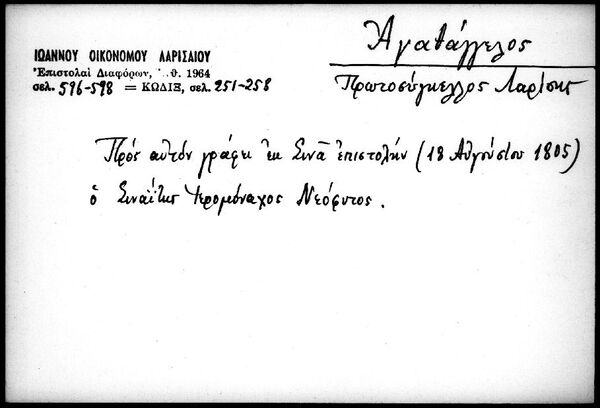 Ἀγαθάγγελος
Πρωτοσύγκελλος Λαρίσης
ΙΩΑΝΝΟΥ ΟΙΚΟΝΟΜΟΥ ΛΑΡΙΣΑΙΟΥ
Ἐπιστολαὶ Διαφόρων, θ. 1964
σελ. 596-598 = ΚΩΔΙΞ, σελ. 251-258
Πρὸς αὐτὸν γράφει ἐκ Σινᾶ ἐπιστολήν (18 Αὐγούστου 1805)
ὁ Σιναΐτης ἱερομόναχος Νεόφυτος.